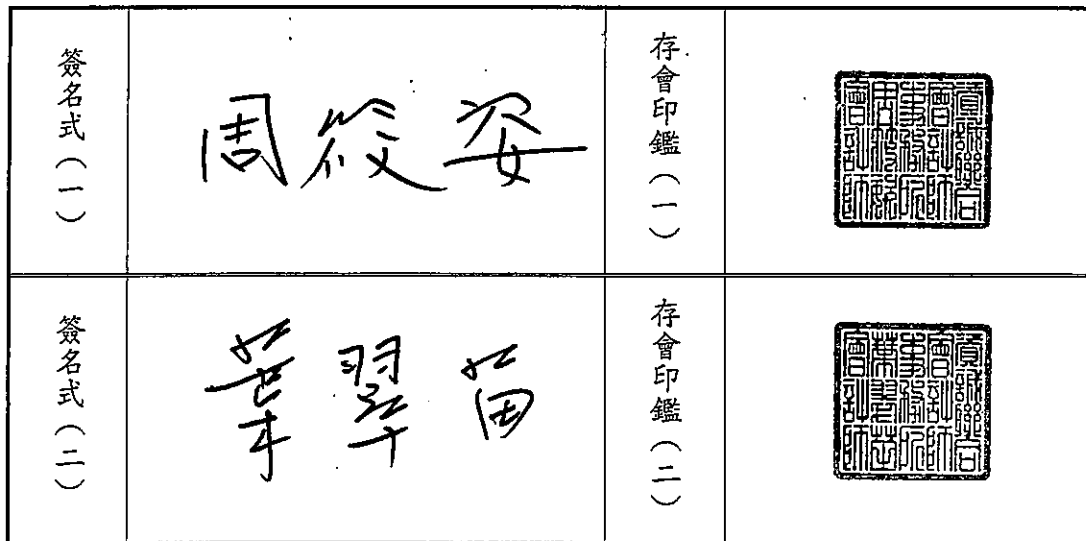 簽名式(一)
周筱姿
存會印鑑(一)
資誠聯合會計師事務所周筱姿會計師
簽名式(二)
葉翠苗
存會印鑑(二)
資誠聯合會計師事務所葉翠苗會計師